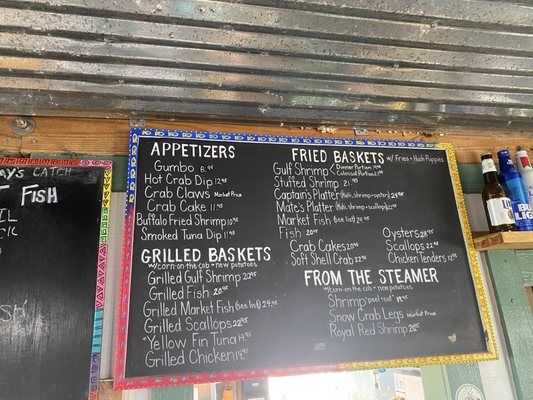 ay's CATCH
FISH
APPETIZERS
Gumbo 8.95
Hot Crab Dip 12.95
Crab Claws Market Price
Crab Cake 11.95
Buffalo Fried Shrimp 10.95
Smoked Tuna Dip 11.95
GRILLED BASKETS
w/corn-on-the-cob + new potatoes
Grilled Gulf Shrimp
Grilled Fish 20.95
Grilled Market Fish (see list) 24.95
Grilled Scallops 22.95
*Yellow Fin Tuna 19.95
Grilled Chicken 14.95
FRIED BASKETS w/ Fries + Hush Puppies
Gulf Shrimp < Dinner Portion
Colossal Portion
Stuffed Shrimp 21.95
Captain's Platter (fish, shrimp + oysters)
Mate's Platter (fish, shrimp + scallops)
Market Fish (see list) 24.95
Fish 20.95
Crab Cakes 20.95
Soft Shell Crab 22.95
Oysters
Scallops 22.95
Chicken Tenders
FROM THE STEAMER
w/corn-on-the-cob + new potatoes
Shrimp "peel + eat"
Snow Crab Legs Market Price
Royal Red Shrimp
BUD